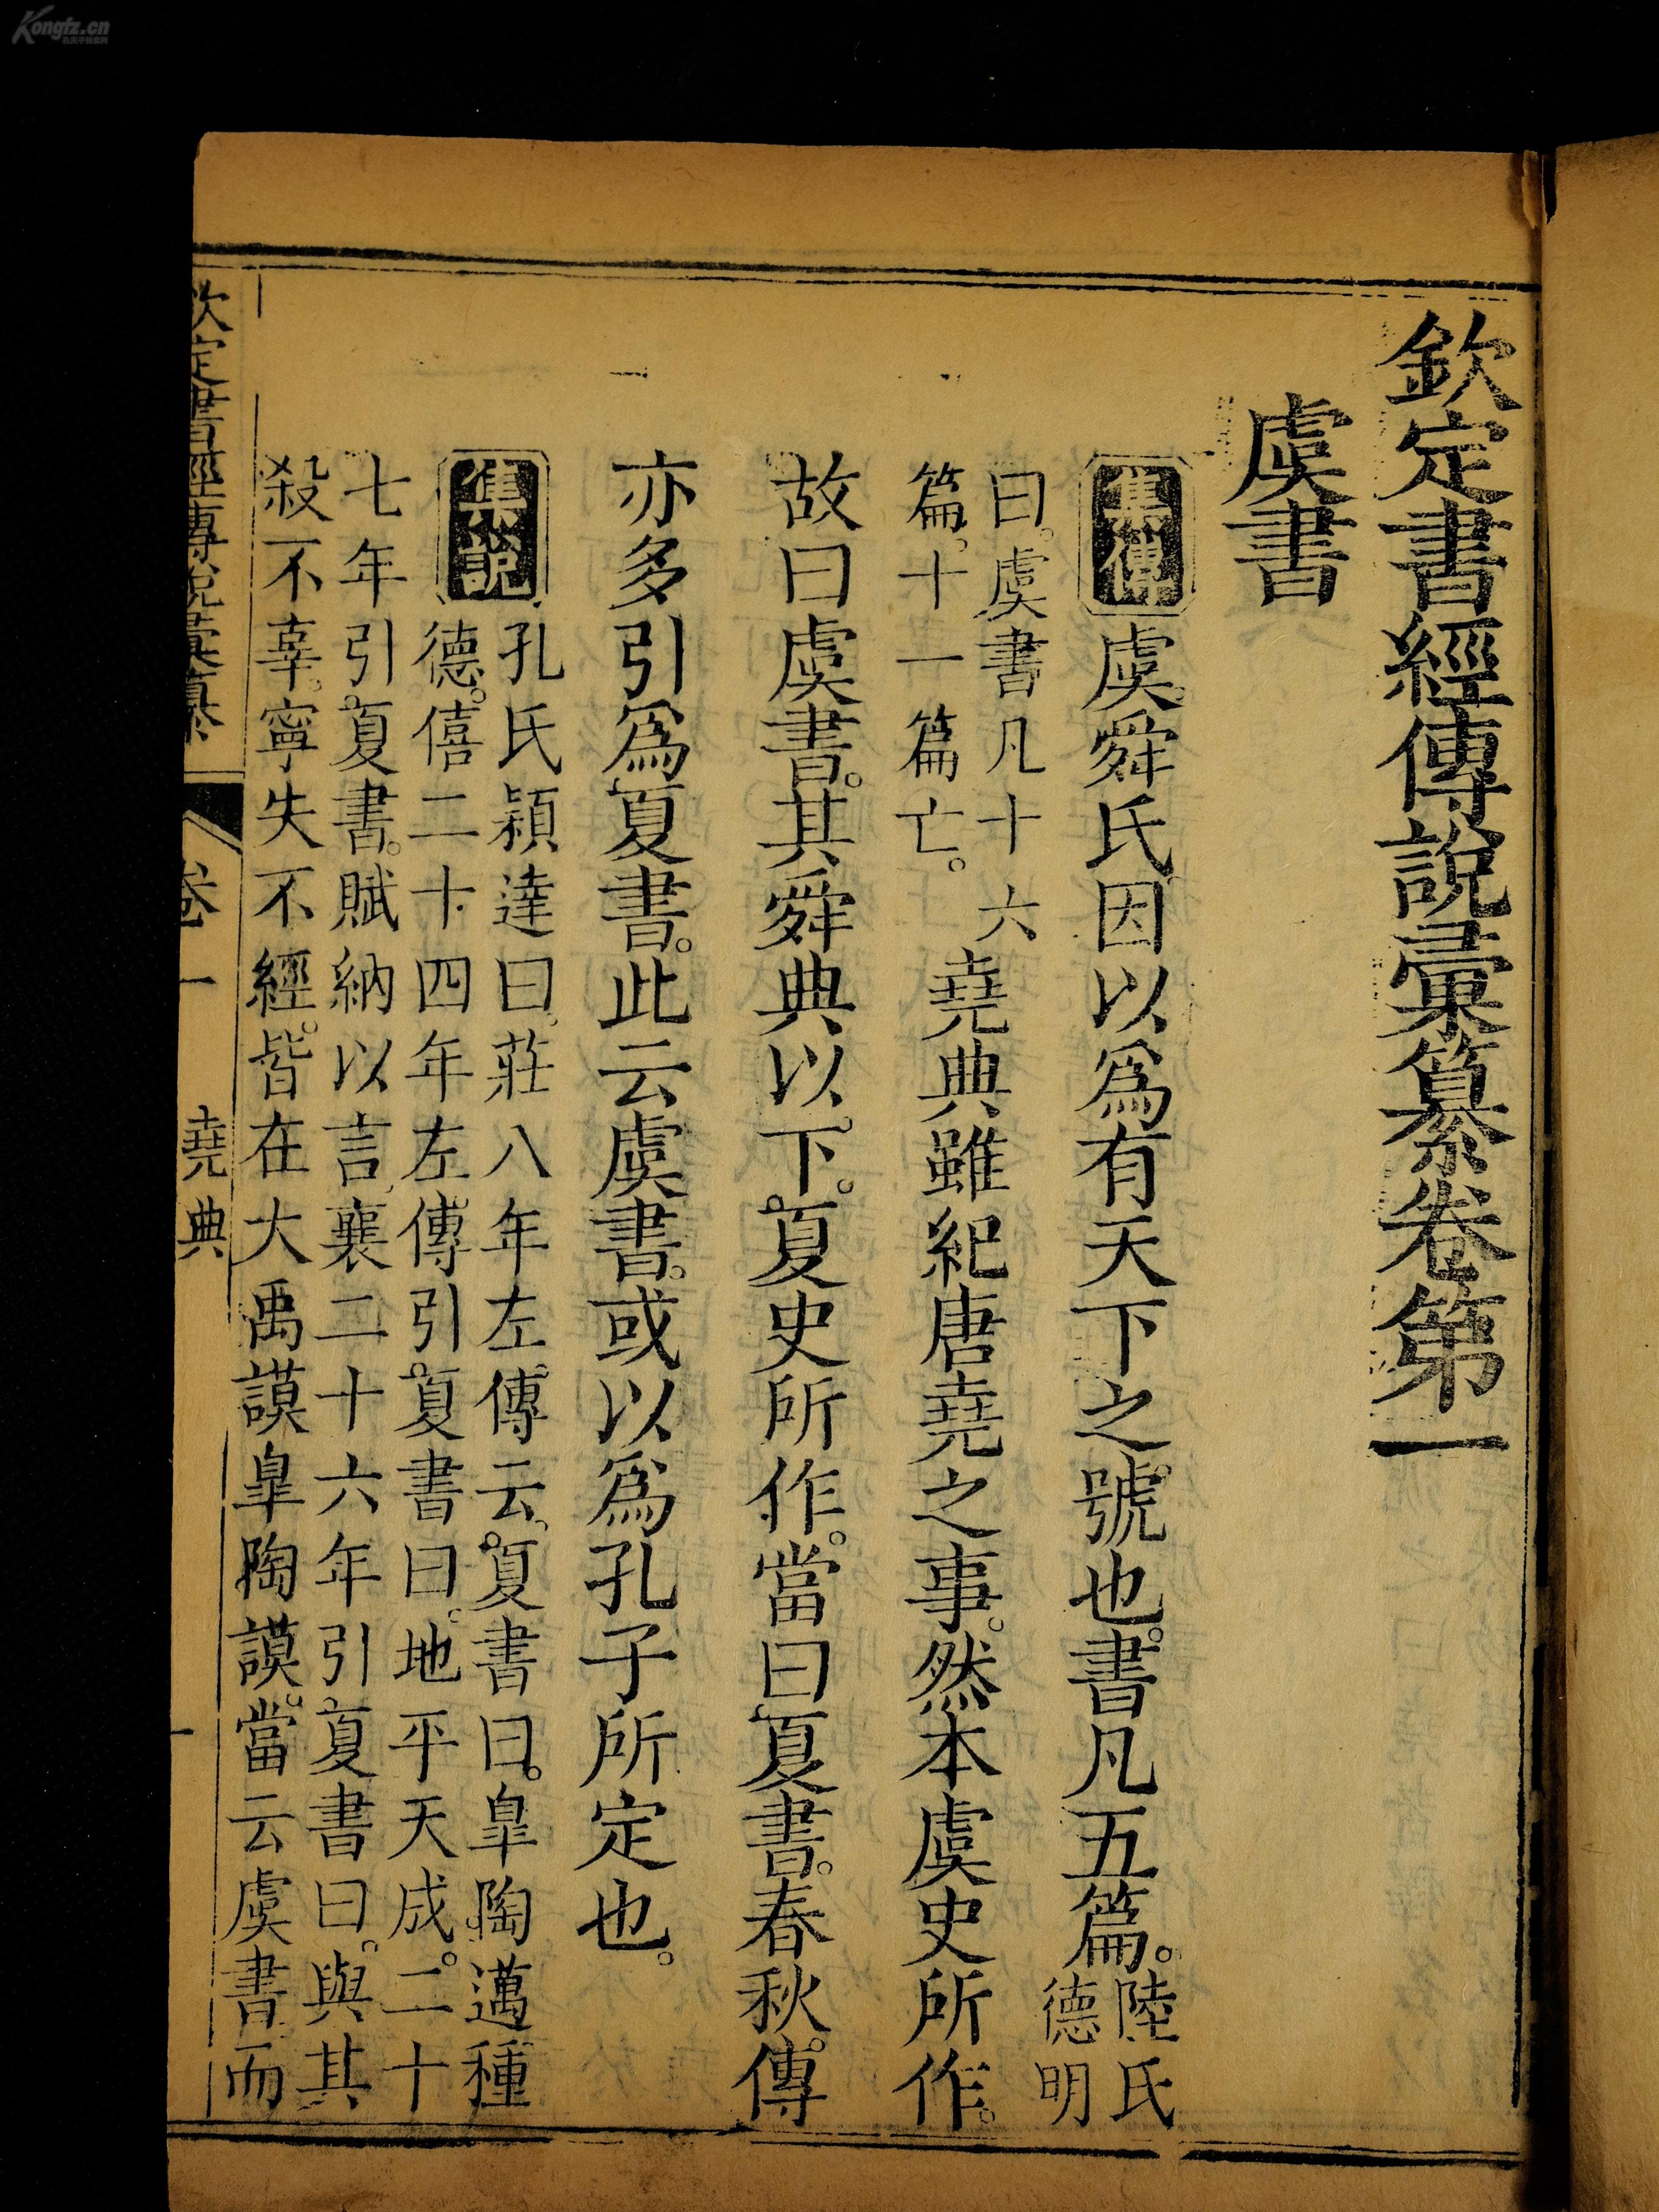 Kongfz.cn
欽定書經傳說彙纂卷第一
虞書
集傳 虞。舜氏。因以爲有天下之號也。書凡五篇。陸氏德明
曰。虞書凡十六
篇。十一篇亡。堯典雖紀唐堯之事。然本虞史所作。
故曰虞書。其舜典以下。夏史所作。當曰夏書。春秋傳
亦多引爲夏書。此云虞書。或以爲孔子所定也。
集說 孔氏穎達曰。莊八年左傳云。夏書曰。皐陶邁種
德。僖二十四年左傳引夏書曰。地平天成。二十
七年引夏書。賦納以言。襄二十六年引夏書曰。與其
殺不辜。寧失不經。皆在大禹謨皐陶謨。當云虞書而
欽定書經傳說彙纂 卷一 堯典 一